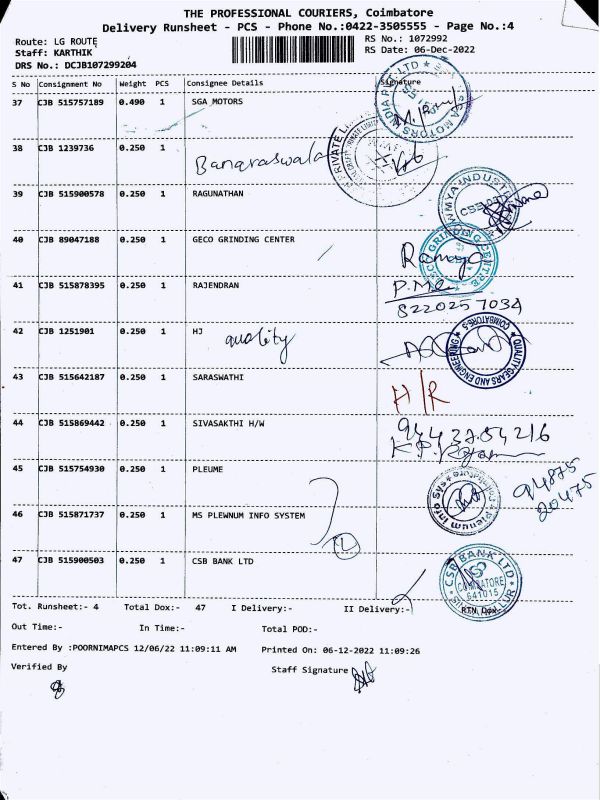 THE PROFESSIONAL COURIERS, Coimbatore
Delivery Runsheet - PCS - Phone No.:0422-3505555 - Page No.:4
Route: LG ROUTE
RS No.: 1072992
Staff: KARTHIK
RS Date: 06-Dec-2022
DRS No.: DCJB107299204
S No Consignment No Weight PCS Consignee Details Signature
37 CJB 515757189 0.490 1 SGA MOTORS
38 CJB 1239736 0.250 1 Banaraswala
39 CJB 515900578 0.250 1 RAGUNATHAN
40 CJB 89047188 0.250 1 GECO GRINDING CENTER
Ramya
41 CJB 515878395 0.250 1 RAJENDRAN
8220257034
42 CJB 1251901 0.250 1 HJ quality
QUALITY GEARS AND ENGINEERING
COIMBATORE-5
43 CJB 515642187 0.250 1 SARASWATHI
H/R
44 CJB 515869442 0.250 1 SIVASAKTHI H/W
45 CJB 515754930 0.250 1 PLEUME
94875
20475
46 CJB 515871737 0.250 1 MS PLEWNUM INFO SYSTEM
47 CJB 515900503 0.250 1 CSB BANK LTD
CSB BANK LTD
COIMBATORE
641015
Tot. Runsheet:- 4 Total Dox:- 47 I Delivery:- II Delivery:- RTN Dox:-
Out Time:- In Time:- Total POD:-
Entered By :POORNIMAPCS 12/06/22 11:09:11 AM Printed On: 06-12-2022 11:09:26
Verified By Staff Signature